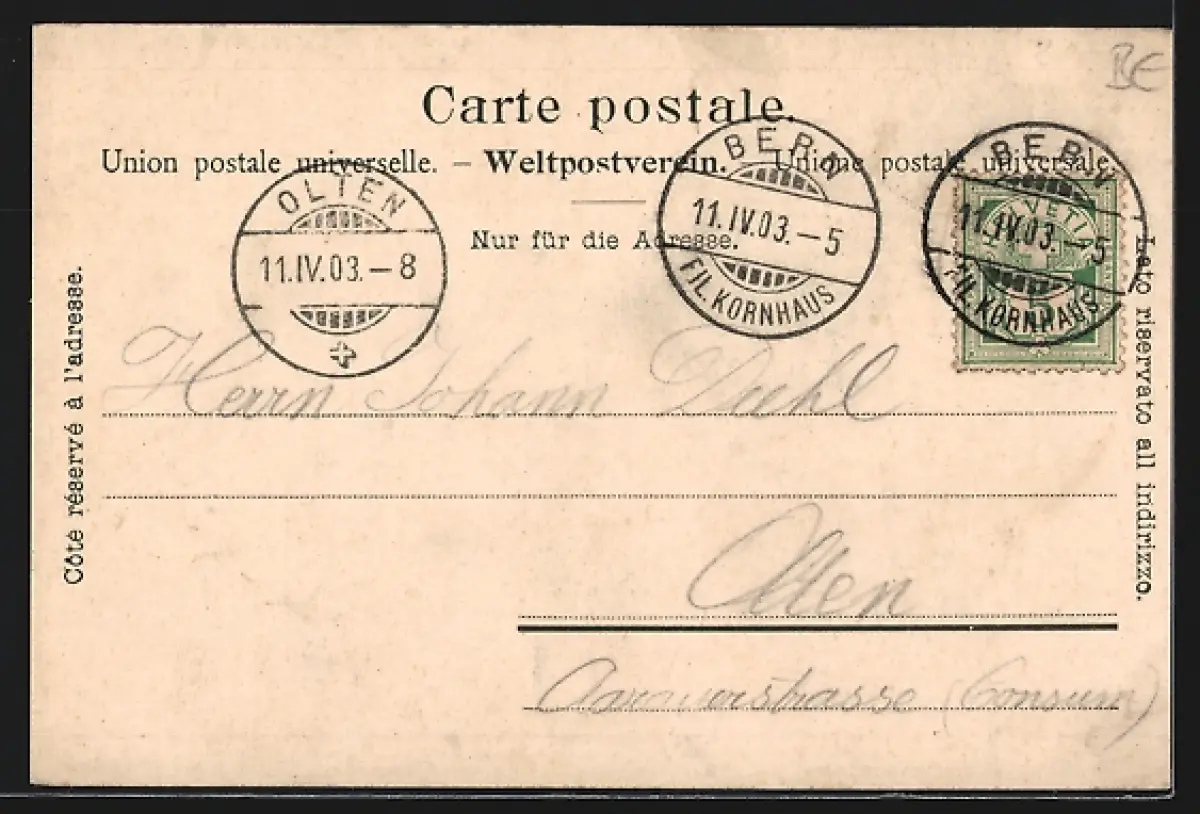 BE
Carte postale.
Union postale universelle. – Weltpostverein. – Unione postale universale.
Nur für die Adresse.
OLTEN
11.IV.03.–8
BERN
11.IV.03.–5
FIL. KORNHAUS
BERN
11.IV.03.–5
FIL. KORNHAUS
HELVETIA
5
Côte réservé à l'adresse.
Lato riservato all indirizzo.
Herrn Johann Diehl
Olten
Aarauerstrasse (Consum)